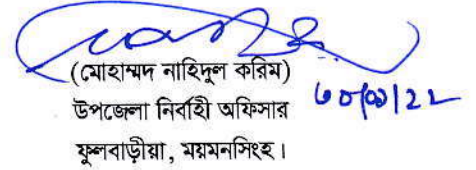 (মোহাম্মদ নাহিদুল করিম)
উপজেলা নির্বাহী অফিসার
ফুলবাড়ীয়া, ময়মনসিংহ।